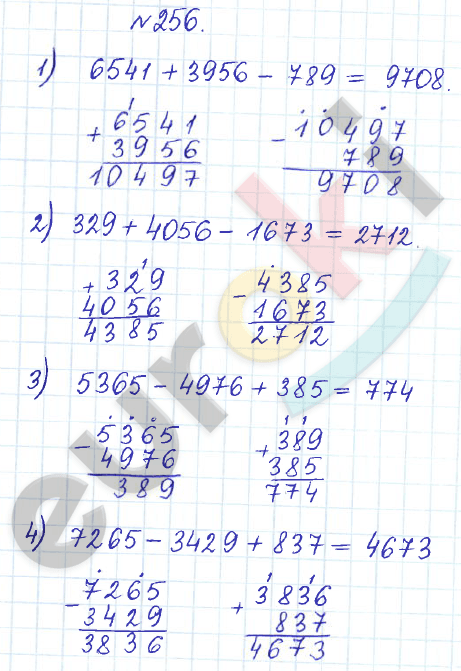 №256.
1) 6541 + 3956 - 789 = 9708.
1
+ 6541
3956
10497
- 10497
789
9708
2) 329 + 4056 - 1673 = 2712.
1
+ 329
4056
4385
- 4385
1673
2712
3) 5365 - 4976 + 385 = 774
- 5365
4976
389
1 1
+ 389
385
774
4) 7265 - 3429 + 837 = 4673
- 7265
3429
3836
1 1
+ 3836
837
4673
euroki